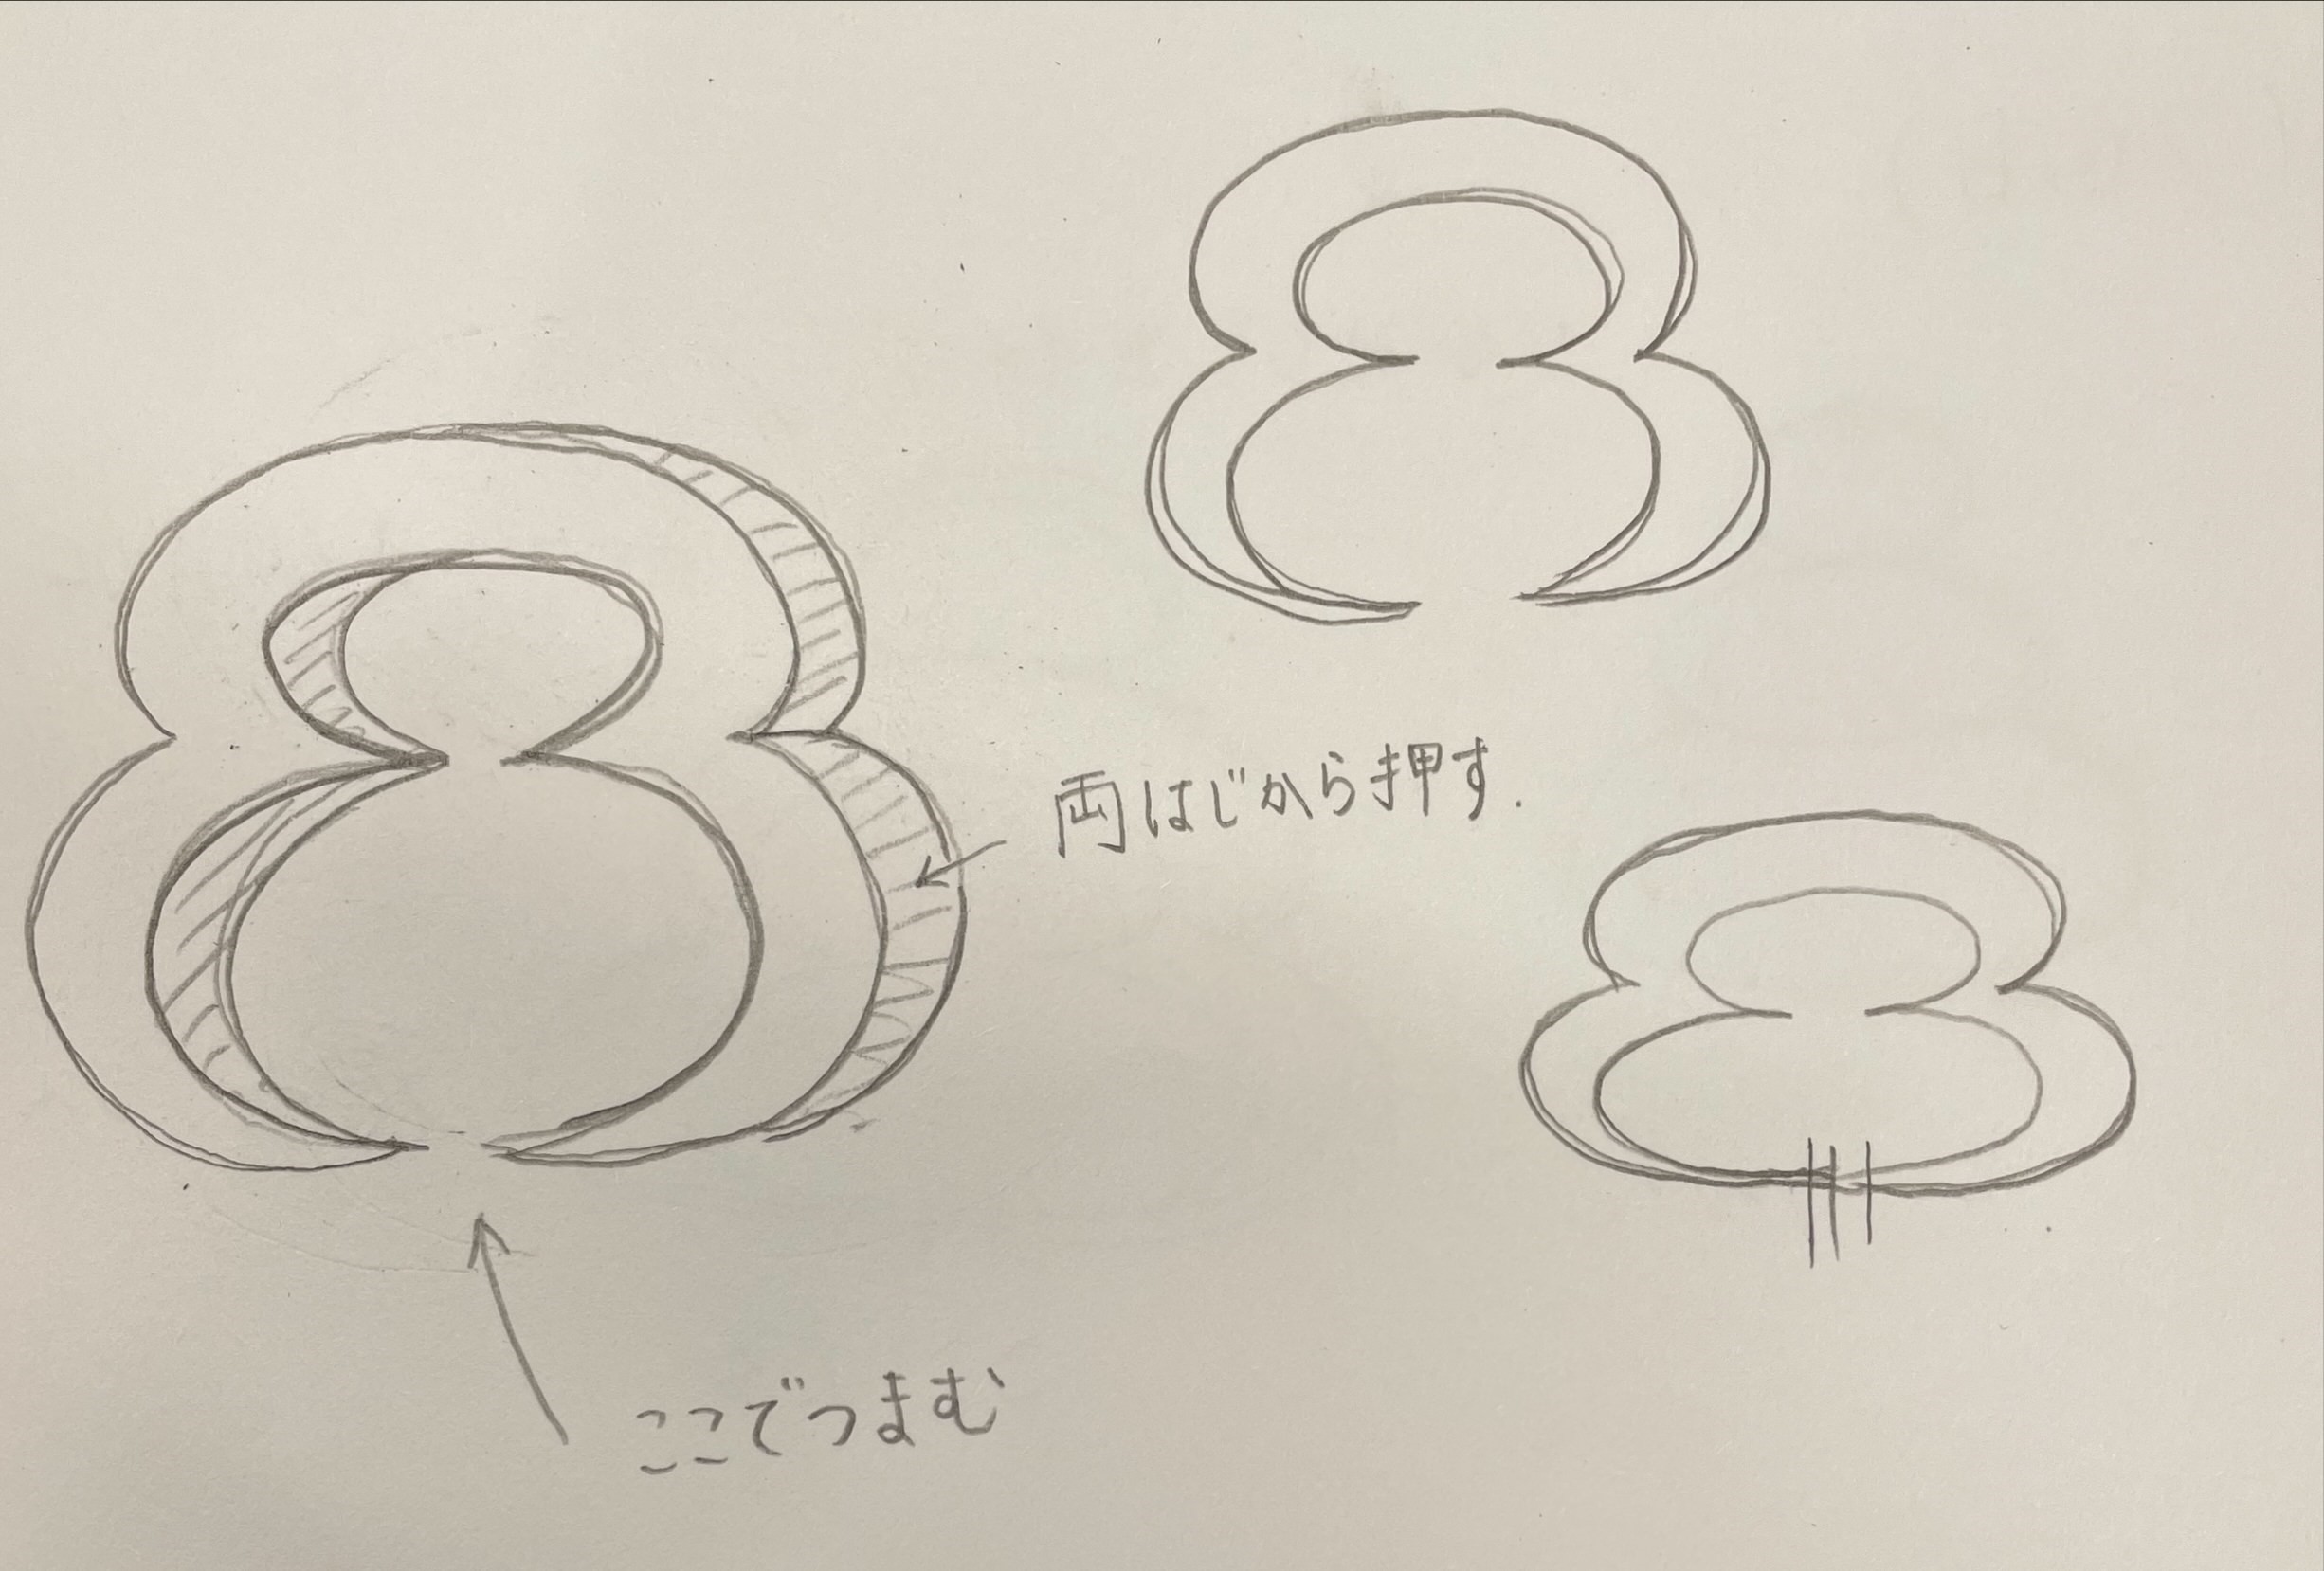 両はじから押す.
ここでつまむ